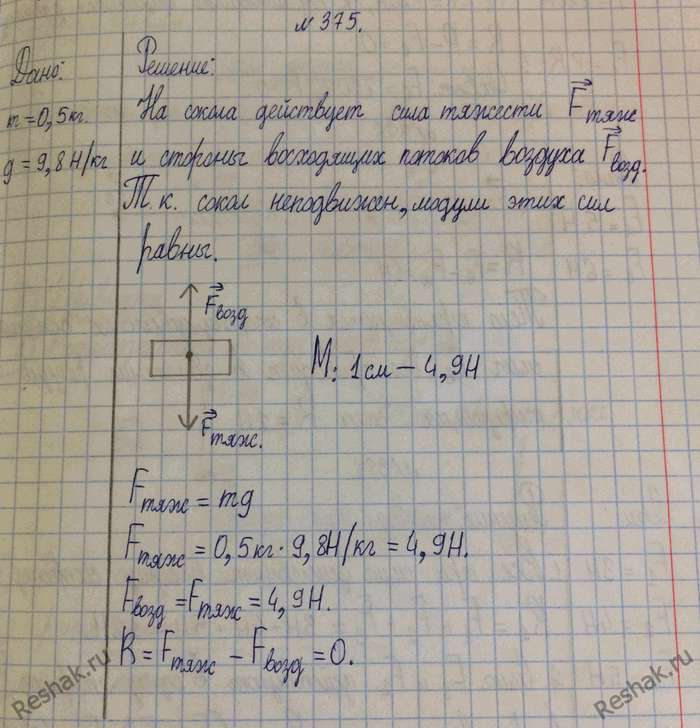 № 375.
Дано:
m = 0,5 кг.
g = 9,8 Н/кг
Решение:
На сокола действует сила тяжести F тяж
и стороны восходящих потоков воздуха F возд.
Т. к. сокол неподвижен, модули этих сил
равны.
F возд
М: 1 см – 4,9 Н
F тяж.
F тяж = mg
F тяж = 0,5 кг · 9,8 Н/кг = 4,9 Н.
F возд = F тяж = 4,9 Н.
R = F тяж – F возд = 0.
Reshak.ru
Reshak.ru